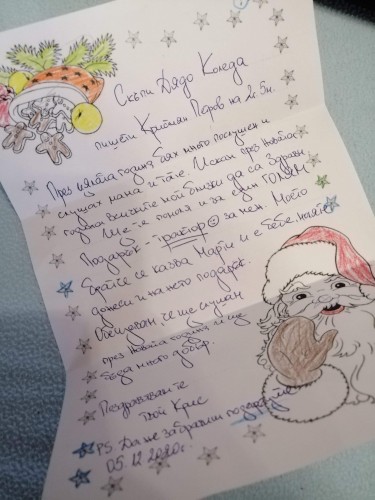 Скъпи Дядо Коледа
пишети Крисиян Перов на 2г. 5м.
През цялата година бях много послушен и
слушах мама и тате. Искам през новата
година всичките мой близки да са здрави
Ще те помоля и за един ГОЛЯМ
Подарък - трактор за мен. Моето
братче се казва Мартин и е бебе. Моля те
донеси и на него подарък.
Обещавам, че ще слушам
през новата година и ще
бъда много добър.
Поздравявам те
твой Крис
PS Да не забравиш подаръците
05.12.2020г.